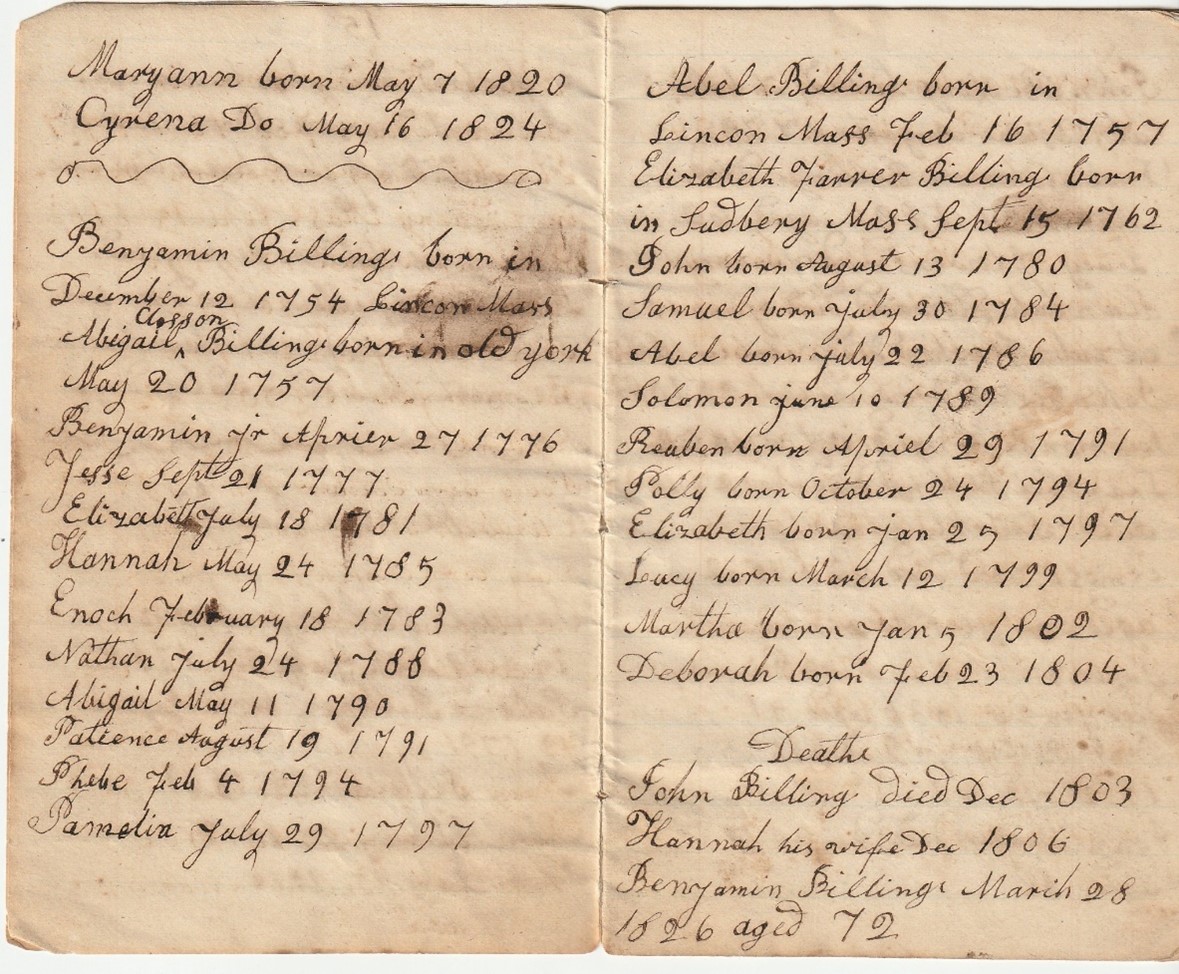 Maryann born May 7 1820
Cyrena Do May 16 1824
Benjamin Billings born in
December 12 1754 Lincon Mass
Closson
Abigail ^ Billings born in old york
May 20 1757
Benjamin jr Aprier 27 1776
Jesse Sept 21 1777
Elizabeth July 18 1781
Hannah May 24 1785
Enoch February 18 1783
Nathan july 24 1788
Abigail May 11 1790
Patience August 19 1791
Phebe Feb 4 1794
Pamelia July 29 1797
Abel Billings born in
Lincon Mass Feb 16 1757
Elizabeth Farrer Billings born
in Sudbery Mass Sept 15 1762
John born August 13 1780
Samuel born july 30 1784
Abel born july 22 1786
Solomon june 10 1789
Reuben born Apriel 29 1791
Polly born October 24 1794
Elizabeth born jan 25 1797
Lucy born March 12 1799
Martha born Jan 5 1802
Deborah born Feb 23 1804
Deaths
John Billing died Dec 1803
Hannah his wife Dec 1806
Benjamin Billings March 28
1826 aged 72